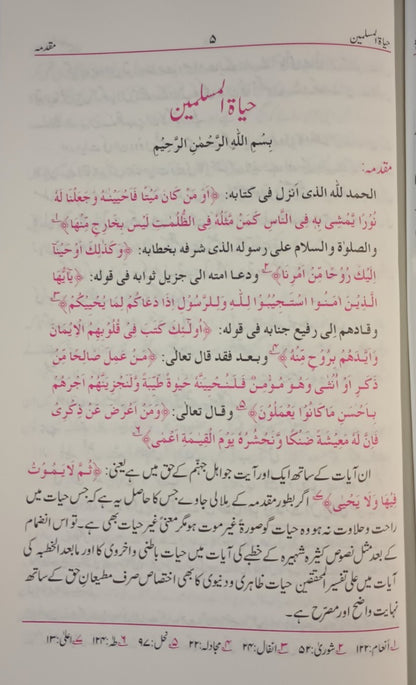 حیاۃ المسلمین ۵ مقدمہ
حیاۃ المسلمین
بِسْمِ اللّٰهِ الرَّحْمٰنِ الرَّحِيْمِ
مقدمہ:
الحمد للّٰه الذى انزل فى كتابه: ﴿اَوَ مَنْ كَانَ مَيْتًا فَاَحْيَيْنٰهُ وَجَعَلْنَا لَهٗ
نُوْرًا يَّمْشِىْ بِهٖ فِى النَّاسِ كَمَنْ مَّثَلُهٗ فِى الظُّلُمٰتِ لَيْسَ بِخَارِجٍ مِّنْهَا﴾ ۱
والصلوٰة والسلام على رسوله الذى شرفه بخطابه: ﴿وَكَذٰلِكَ اَوْحَيْنَا
اِلَيْكَ رُوْحًا مِّنْ اَمْرِنَا﴾ ۲ ودعا امته الى جزيل ثوابه فى قوله: ﴿يٰٓاَيُّهَا
الَّذِيْنَ اٰمَنُوا اسْتَجِيْبُوْا لِلّٰهِ وَلِلرَّسُوْلِ اِذَا دَعَاكُمْ لِمَا يُحْيِيْكُمْ﴾ ۳
وقادهم الى رفيع جنابه فى قوله: ﴿اُولٰٓئِكَ كَتَبَ فِىْ قُلُوْبِهِمُ الْاِيْمَانَ
وَاَيَّدَهُمْ بِرُوْحٍ مِّنْهُ﴾ ۴ وبعد فقد قال تعالٰى: ﴿مَنْ عَمِلَ صَالِحًا مِّنْ
ذَكَرٍ اَوْ اُنْثٰى وَهُوَ مُؤْمِنٌ فَلَنُحْيِيَنَّهٗ حَيٰوةً طَيِّبَةً وَلَنَجْزِيَنَّهُمْ اَجْرَهُمْ
بِاَحْسَنِ مَاكَانُوْا يَعْمَلُوْنَ﴾ ۵ وقال تعالٰى: ﴿وَمَنْ اَعْرَضَ عَنْ ذِكْرِىْ
فَاِنَّ لَهٗ مَعِيْشَةً ضَنْكًا وَّنَحْشُرُهٗ يَوْمَ الْقِيٰمَةِ اَعْمٰى﴾ ۶
ان آیات کے ساتھ ایک اور آیت جو اہل جہنّم کے حق میں ہے یعنی: ﴿ثُمَّ لَا يَمُوْتُ
فِيْهَا وَلَا يَحْيٰى﴾ ۷ اگر بطور مقدمہ کے ملالی جاوے جس کا حاصل یہ ہے کہ جس حیات میں
راحت وحلاوت نہ ہو وہ حیات گو صورۃً غیر موت ہو مگر معنیً غیر حیات بھی ہے۔ تو اس انضمام
کے بعد مثل نصوص کثیرہ شہیرہ کے خطبے کی آیات میں حیات باطنی واخروی کا اور مابعد الخطبہ کی
آیات میں علی تفسیر المحققین حیات ظاہری ودنیوی کا بھی اختصاص صرف مطیعانِ حق کے ساتھ
نہایت واضح اور مصرح ہے۔
۱ انعام: ۱۲۲ ۲ شوریٰ: ۵۲ ۳ انفال: ۲۴ ۴ مجادلہ: ۲۲ ۵ نحل: ۹۷ ۶ طہٰ: ۱۲۴ ۷ اعلیٰ: ۱۳